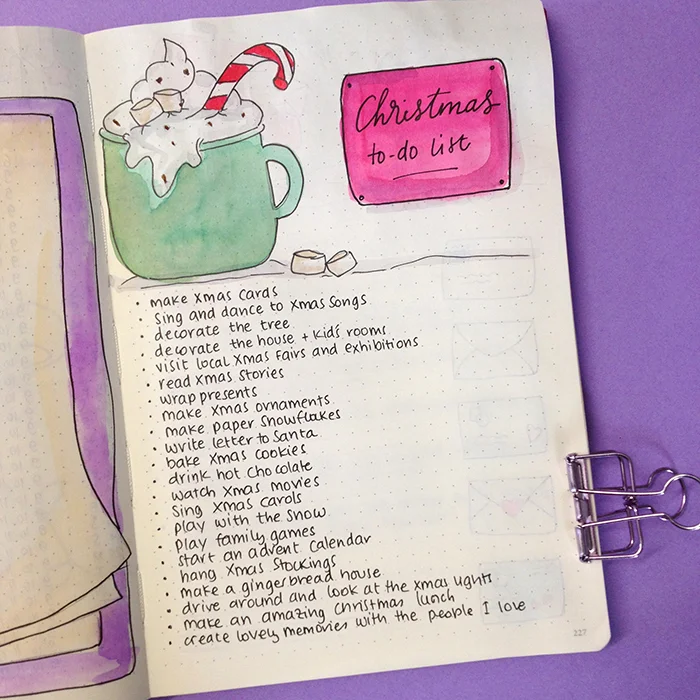 Christmas
to-do list
• make xmas cards
• sing and dance to xmas songs
• decorate the tree
• decorate the house + kids' rooms
• visit local xmas fairs and exhibitions
• read xmas stories
• wrap presents
• make xmas ornaments
• make paper snowflakes
• write letter to Santa
• bake xmas cookies
• drink hot chocolate
• watch xmas movies
• sing xmas carols
• play with the snow
• play family games
• start an advent calendar
• hang xmas stockings
• make a gingerbread house
• drive around and look at the xmas lights
• make an amazing christmas lunch
• create lovely memories with the people I love
227